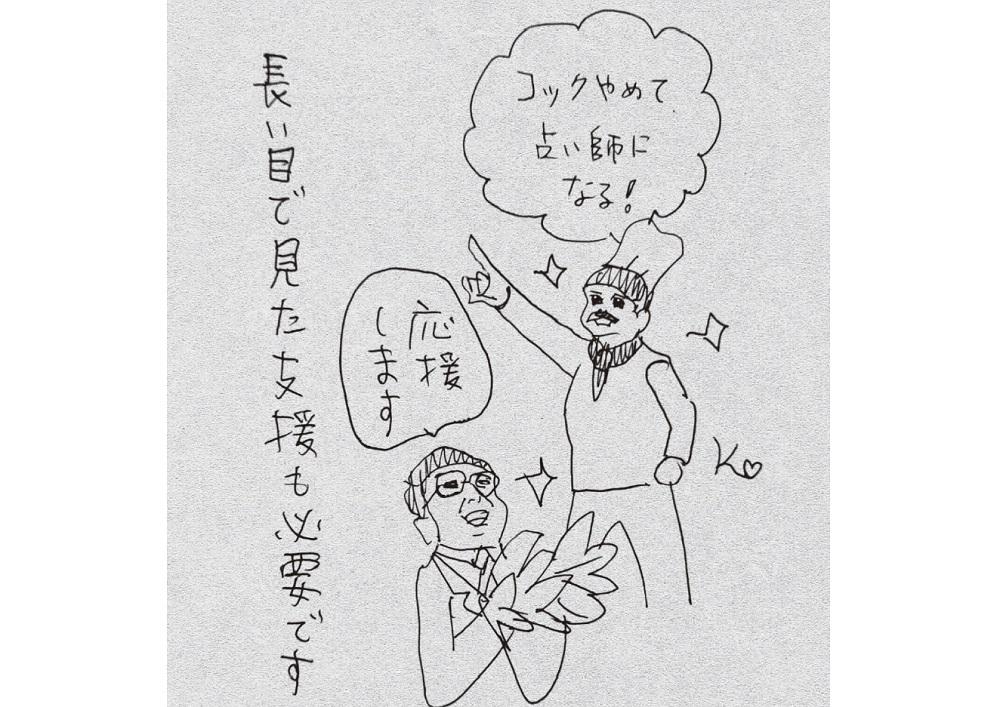 長い目で見た支援も必要です
コックやめて
占い師に
なる!
応援
します
K♡